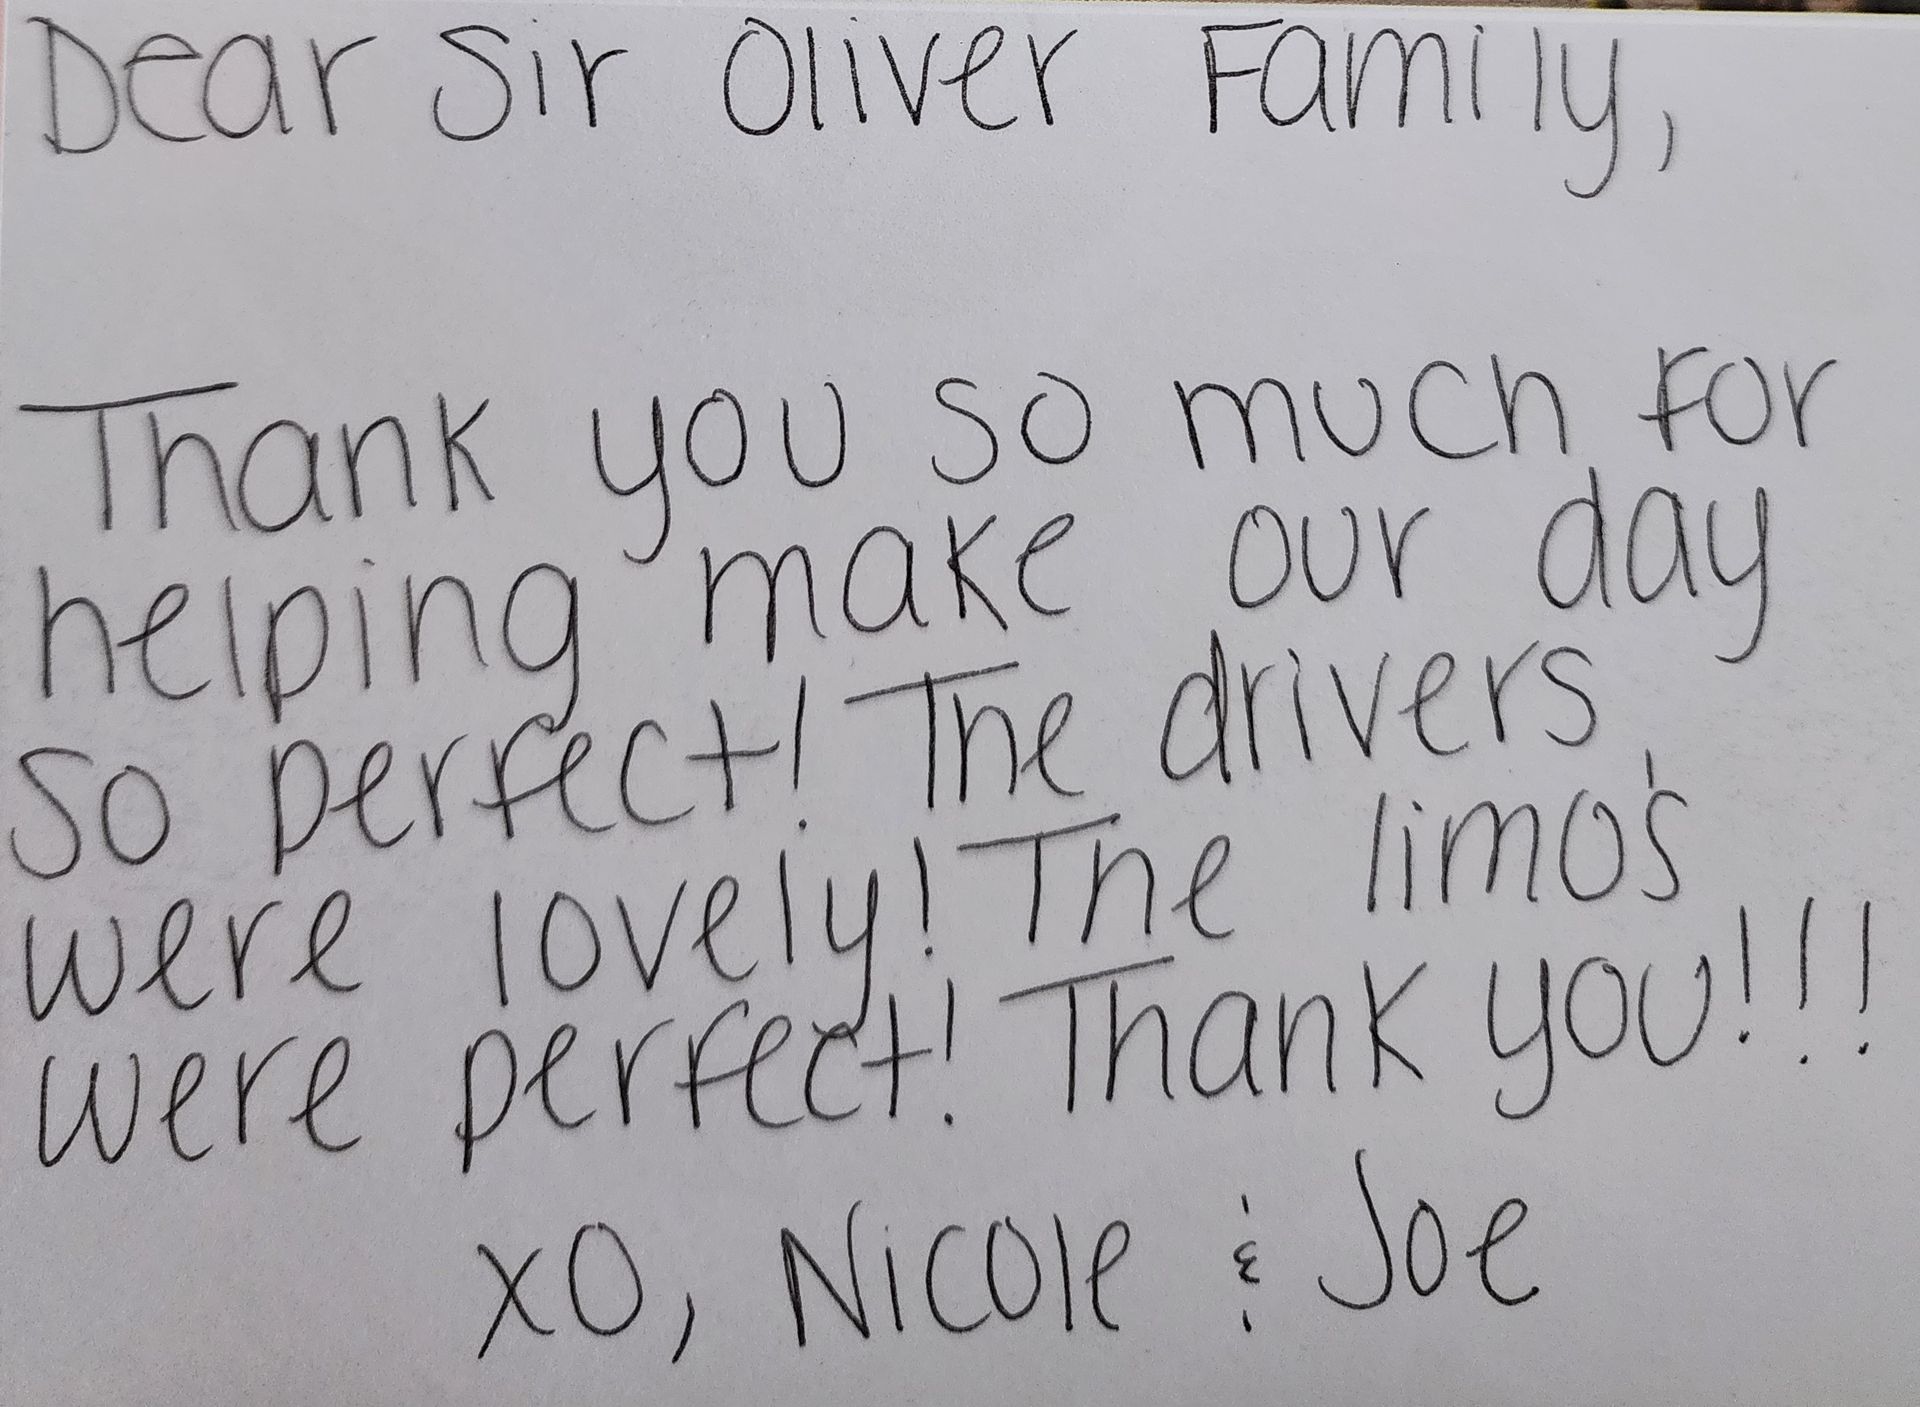 Dear Sir Oliver Family,
Thank you so much for
helping make our day
so perfect! The drivers
were lovely! The limo's
were perfect! Thank you!!!
XO, Nicole & Joe